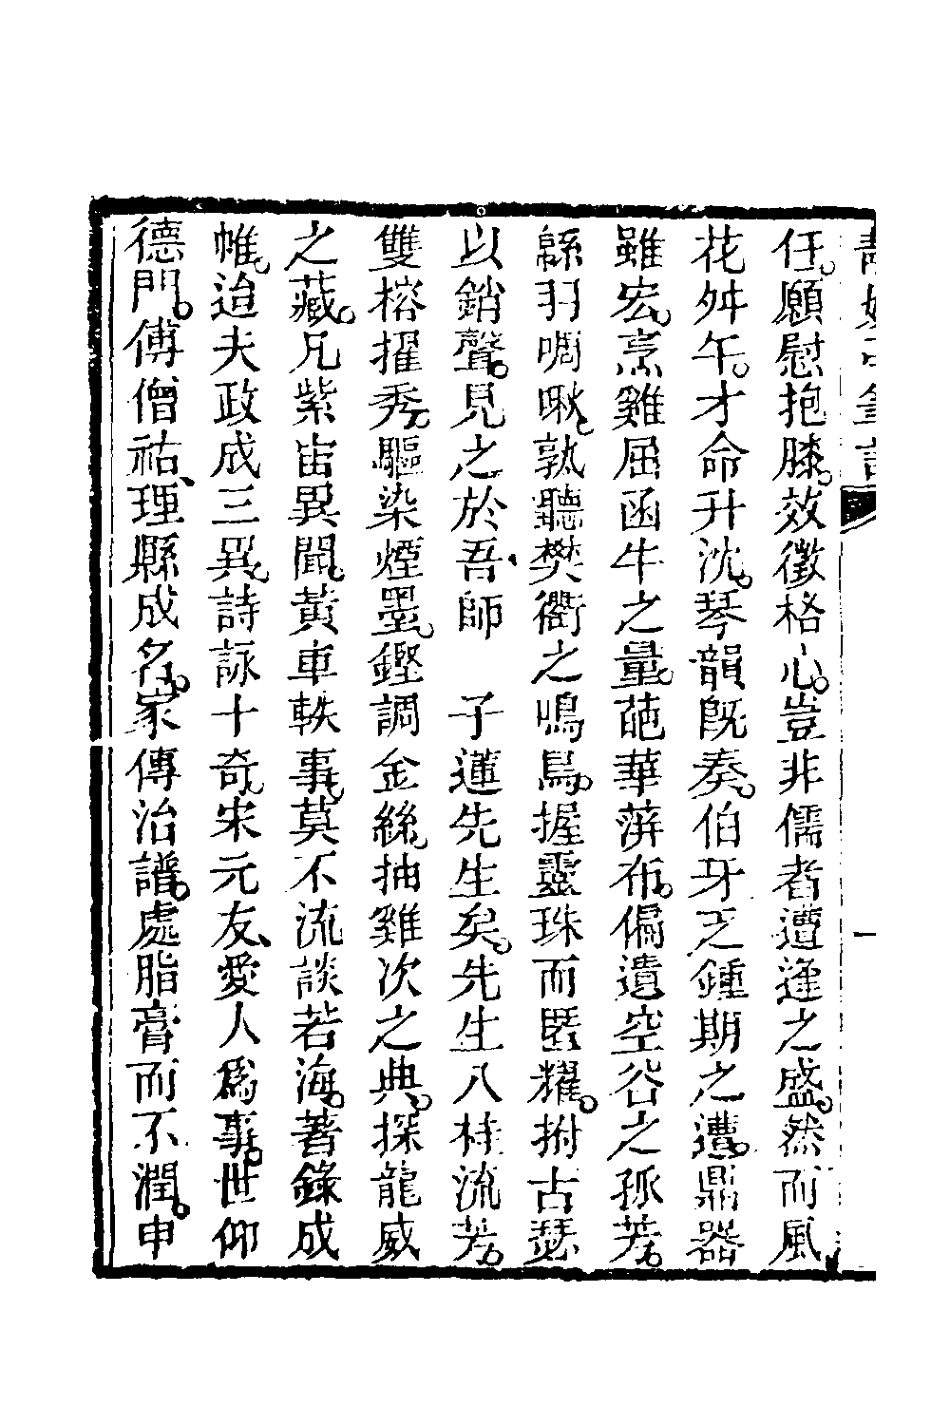 任。願慰抱膝。效徵格心。豈非儒者遭逢之盛。然而風
花舛午。才命升沈。琴韻旣奏。伯牙乏鍾期之遭。鼎器
雖宏。烹雞屈函牛之量。葩華蓱布。偏遺空谷之孤芳。
緜羽啁啾。孰聽樊衢之鳴鳥。握靈珠而匿耀。拊古瑟
以銷聲。見之於吾師　子蓮先生矣。先生八桂流芳。
雙榕擢秀。驅染煙墨。鏗調金絲。抽雞次之典。探龍威
之藏。凡紫宙異聞。黃車軼事。莫不流談若海。著錄成
帷。迨夫政成三異。詩詠十奇。宋元友、愛人爲事。世仰
德門。傅僧祐、理縣成名。家傳治譜。處脂膏而不潤。申